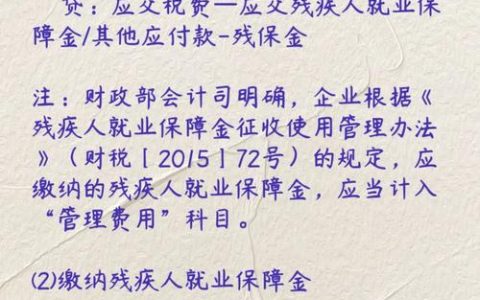 贷：应交税费—应交残疾人就业保
障金/其他应付款-残保金
注：财政部会计司明确，企业根据《
残疾人就业保障金征收使用管理办法
》（财税〔2015〕72号）的规定，应
缴纳的残疾人就业保障金，应当计入
“管理费用”科目。
⑵缴纳残疾人就业保障金